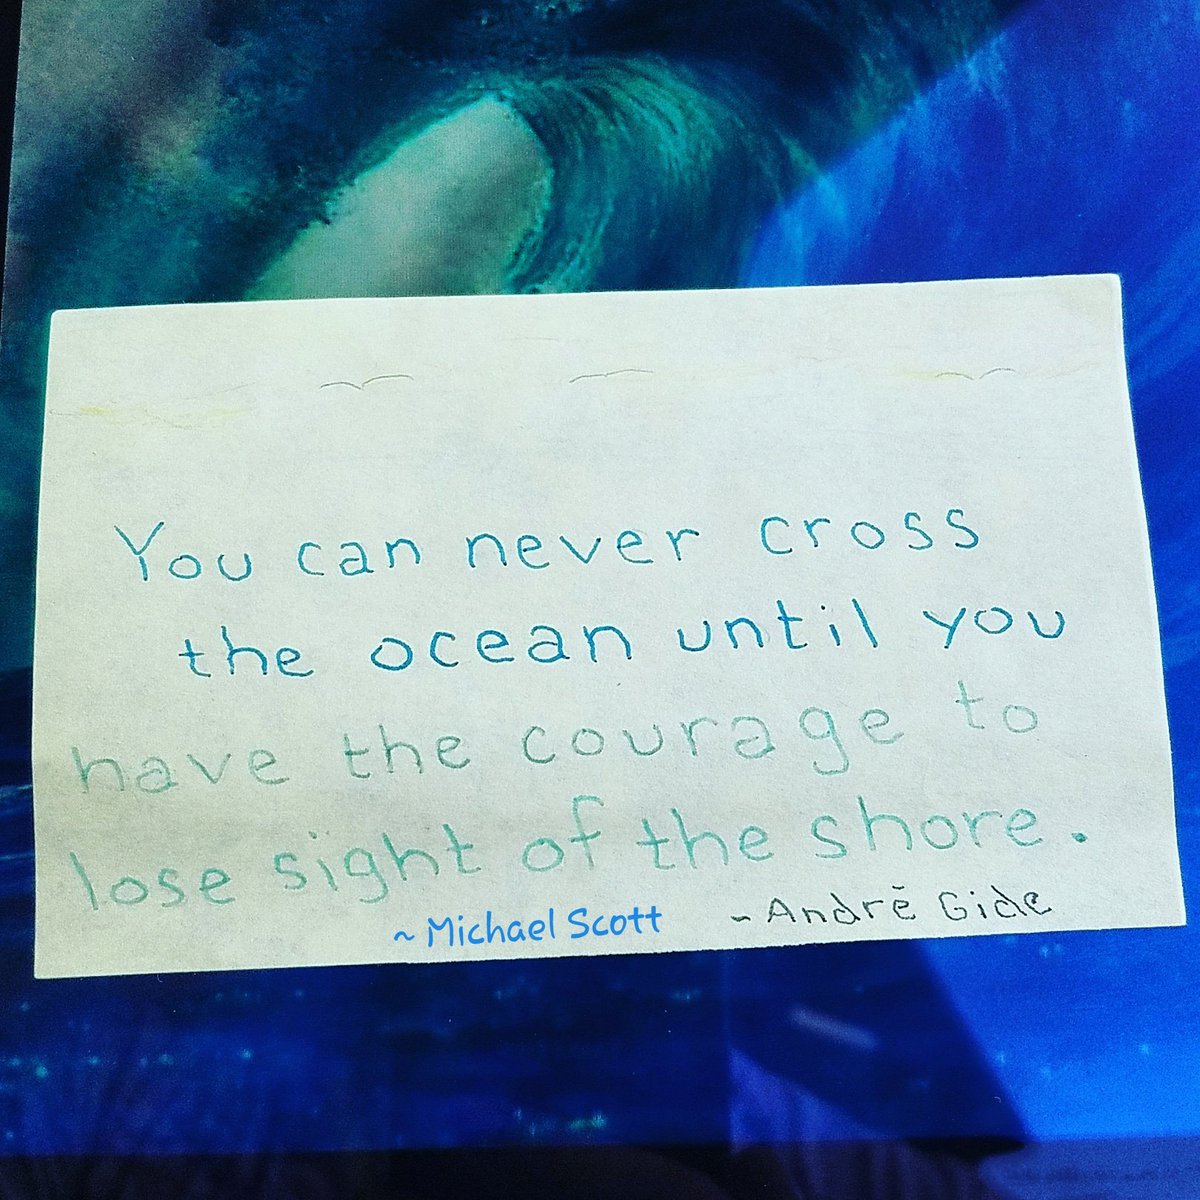 You can never cross
the ocean until you
have the courage to
lose sight of the shore.
~ Michael Scott ~ André Gide